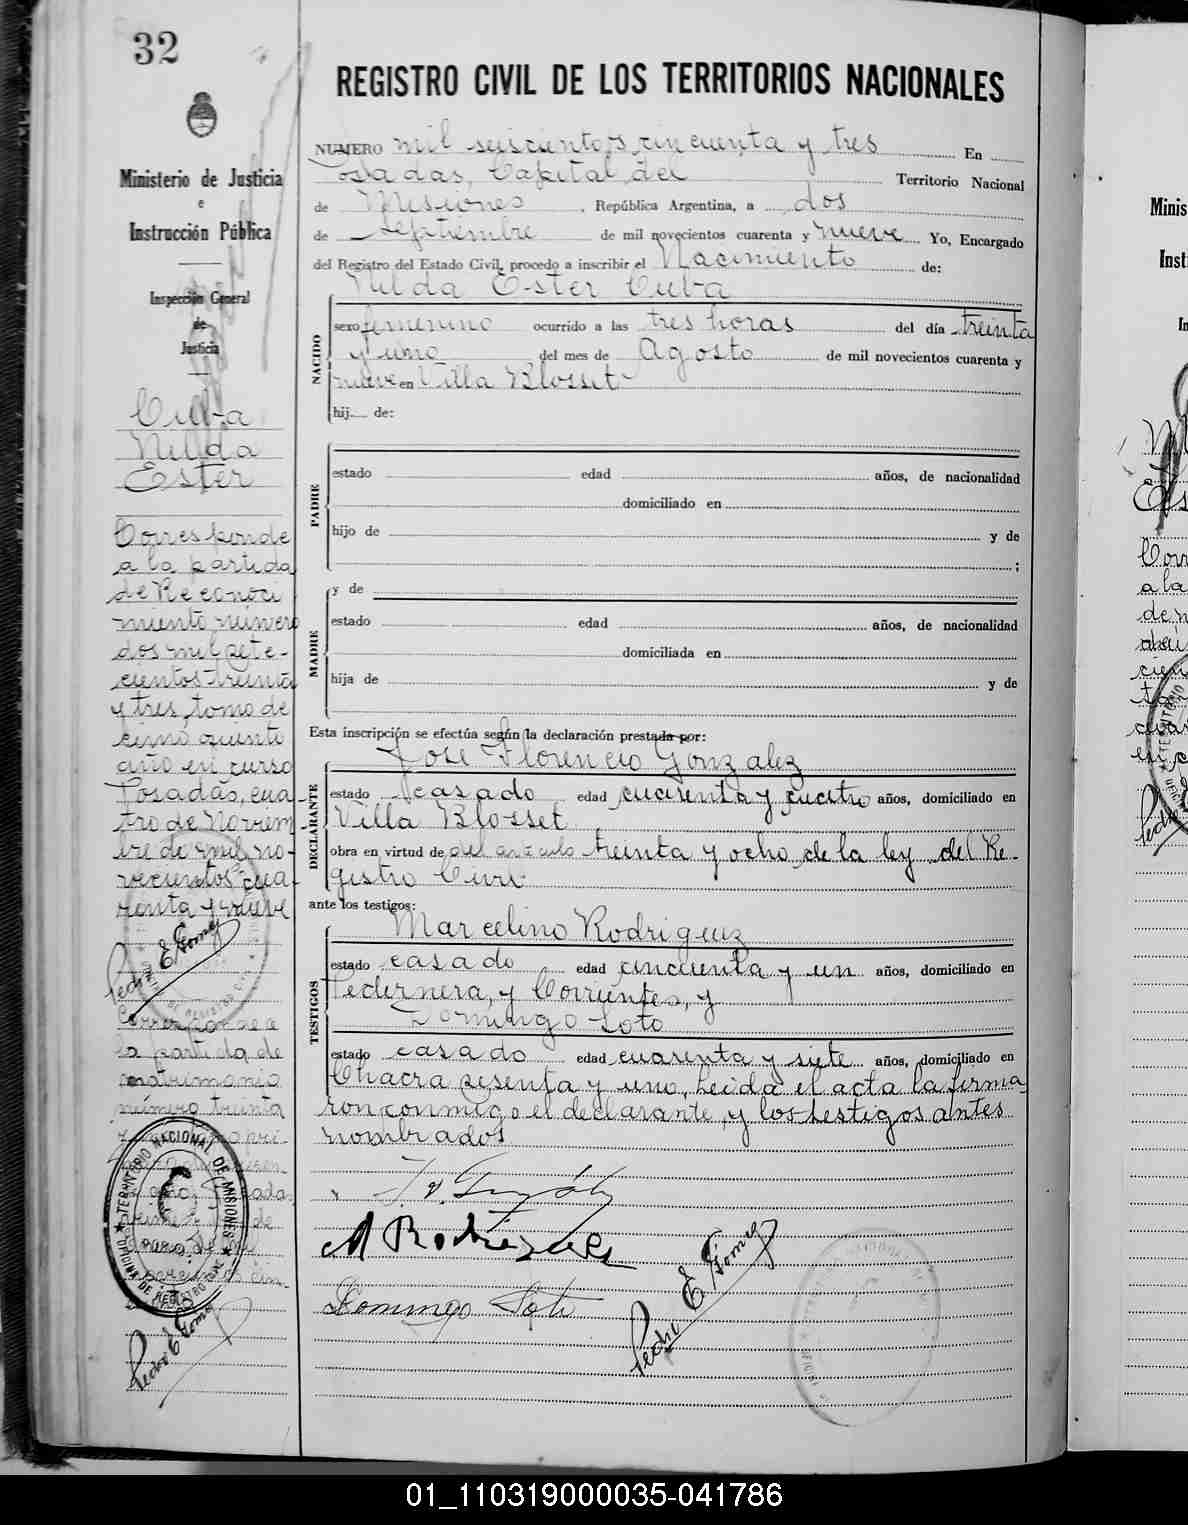 32
REGISTRO CIVIL DE LOS TERRITORIOS NACIONALES
Ministerio de Justicia
e
Instrucción Pública
Inspección General
de
Justicia
Cuba
Nilda
Ester
Corresponde
a la partida
de Reconoci
miento número
dos mil sete-
cientos treinta
y tres, tomo de
cimo quinto
año en curso
Posadas, cua-
tro de Noviem-
bre de mil no-
vecientos cua-
renta y nueve
Pedro E. Gomez
Corresponde a
la partida de
matrimonio
número treinta
TERRITORIO NACIONAL DE MISIONES
OFICINA DE REGISTRO CIVIL
Pedro E Gomez
NUMERO mil seiscientos cincuenta y tres En
Posadas, Capital del Territorio Nacional
de Misiones, República Argentina, a dos
de Septiembre de mil novecientos cuarenta y nueve Yo, Encargado
del Registro del Estado Civil, procedo a inscribir el Nacimiento de:
Nilda Ester Cuba
NACIDO
sexo femenino ocurrido a las tres horas del día treinta
y uno del mes de Agosto de mil novecientos cuarenta y
nueve en Villa Blosset
hij de:
PADRE
estado edad años, de nacionalidad
domiciliado en
hijo de y de
;
MADRE
y de
estado edad años, de nacionalidad
domiciliada en
hija de y de
Esta inscripción se efectúa según la declaración prestada por:
José Florencio Gonzalez
DECLARANTE
estado casado edad cuarenta y cuatro años, domiciliado en
Villa Blosset
obra en virtud de del artículo treinta y ocho de la ley del Re-
gistro Civil
ante los testigos:
Marcelino Rodriguez
TESTIGOS
estado casado edad cincuenta y un años, domiciliado en
Pedernera, y Corrientes, y
Domingo Soto
estado casado edad cuarenta y siete años, domiciliado en
Chacra sesenta y uno. Leida el acta la firma
ron conmigo el declarante, y los testigos antes
nombrados
M Rodriguez
Domingo Soto
Pedro E Gomez
Minis
Inst
In
Corr
a la
de n
01_110319000035-041786